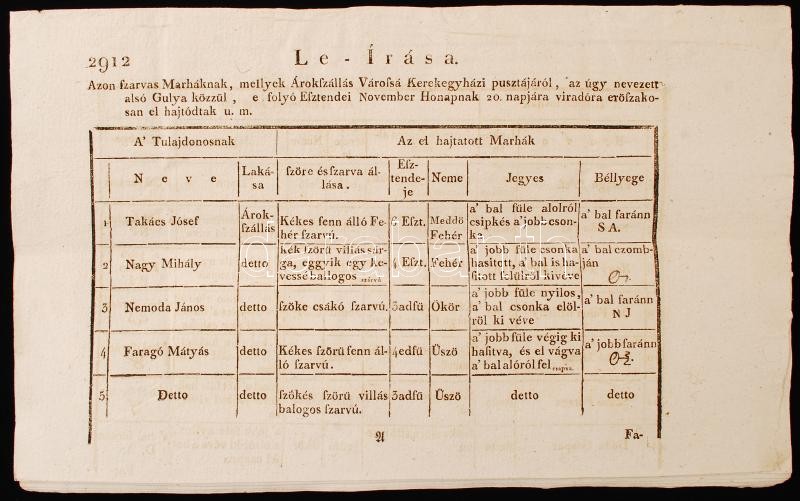 2912
Le-Írása.
Azon ſzarvas Marháknak, mellyek Árokſzállás Várofsá Kerekegyházi puſztájáról, az úgy nevezett
alsó Gulya közzül, e folyó Eſztendei November Honapnak 20. napjára viradóra erőſzako-
san el hajtódtak u. m.
A' Tulajdonosnak | Az el hajtatott Marhák
Neve | Laká-sa | ſzőre és ſzarva ál-lása. | Eſz-tende-je | Neme | Jegyes | Béllyege
1 Takács Jósef | Árok-ſzállás | Kékes fenn álló Fe-hér ſzarvú. | 4 Eſzt. | Meddő Fehér | a' bal füle alolról csipkés a' jobb cson-ka. | a' bal faránn S A.
2 Nagy Mihály | detto | kék ſzőrű villás sár-ga, eggyik egy ke-vessé ballogos ſzarvú | 4 Eſzt. | Fehér | a' jobb füle csonka haſitott, a' bal is ha-ſitott felülről kivéve | a' bal czomb-ján
3 Nemoda János | detto | ſzőke csákó ſzarvú. | 3adfű | Ökör | a' jobb füle nyilos, a' bal csonka elől-ről ki véve | a' bal faránn N J
4 Faragó Mátyás | detto | Kékes ſzőrű fenn ál-ló ſzarvú. | 4edfű | Üsző | a' jobb füle végig ki haſitva, és el vágva a' bal alóról fel csapva. | a' jobb faránn
5 Detto | detto | ſzőkés ſzőrű villás balogos ſzarvú. | 3adfű | Üsző | detto | detto
A Fa-